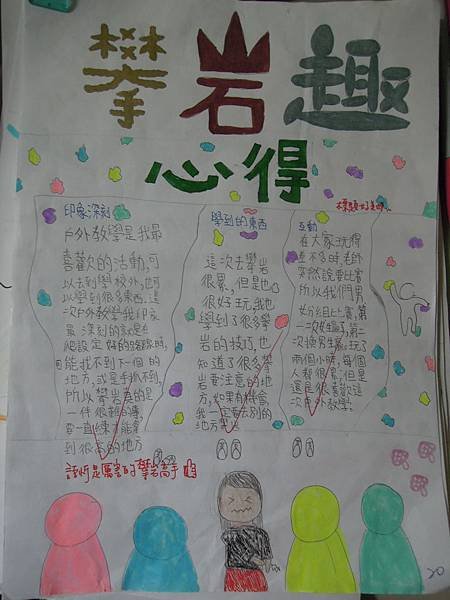 攀岩趣
心得
標題好美
印象深刻
戶外教學是我最
喜歡的活動,可
以去到學校外,也可
以學到很多東西,這
次戶外教學我印象
最深刻的就是
爬設定好的路線時,
能找不到下一個的
地方,或是手抓不到,
所以攀岩真的是
一件很難的事,
要一直練才能拿
到很高的地方
學到的東西
這次去攀岩
很累,但是也
很好玩,我也
學到了很多攀
岩的技巧,也
知道了很多攀
岩要注意的地
方,如果有機會,
我一定要去別的
地方攀
互動
在大家玩得
差不多時,老師
突然說要比賽
所以我們男
女分組比賽,第
一次女生輸了,第二
次換男生輸,玩了
兩個小時,每個
人都很累,但是
還是很喜歡這
次戶外教學。
話听是厲害的攀岩高手
20